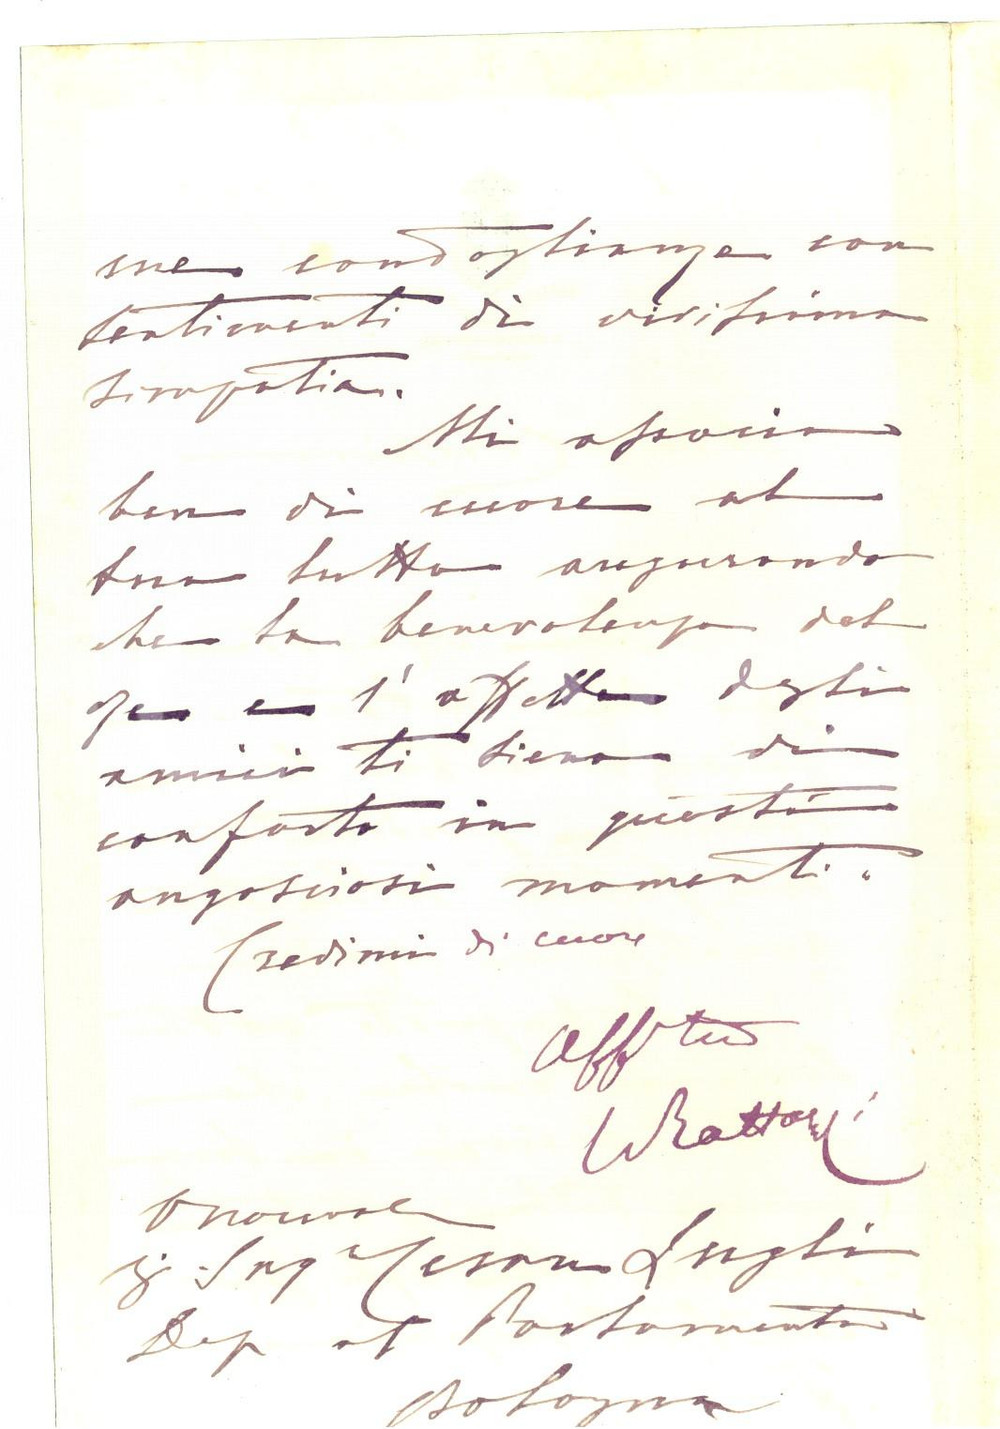 sue condoglianze con
sentimenti di vivissima
simpatia.
Mi associo
ben di cuore al
tuo lutto augurando
che la benevolenza del
Re e l'affetto degli
amici ti sieno di
conforto in questi
angosciosi momenti.
Credimi di cuore
Aff tuo
URattazzi
Onorevole
Sig. Ing. Cesare Lugli
Dep al Parlamento
Bologna